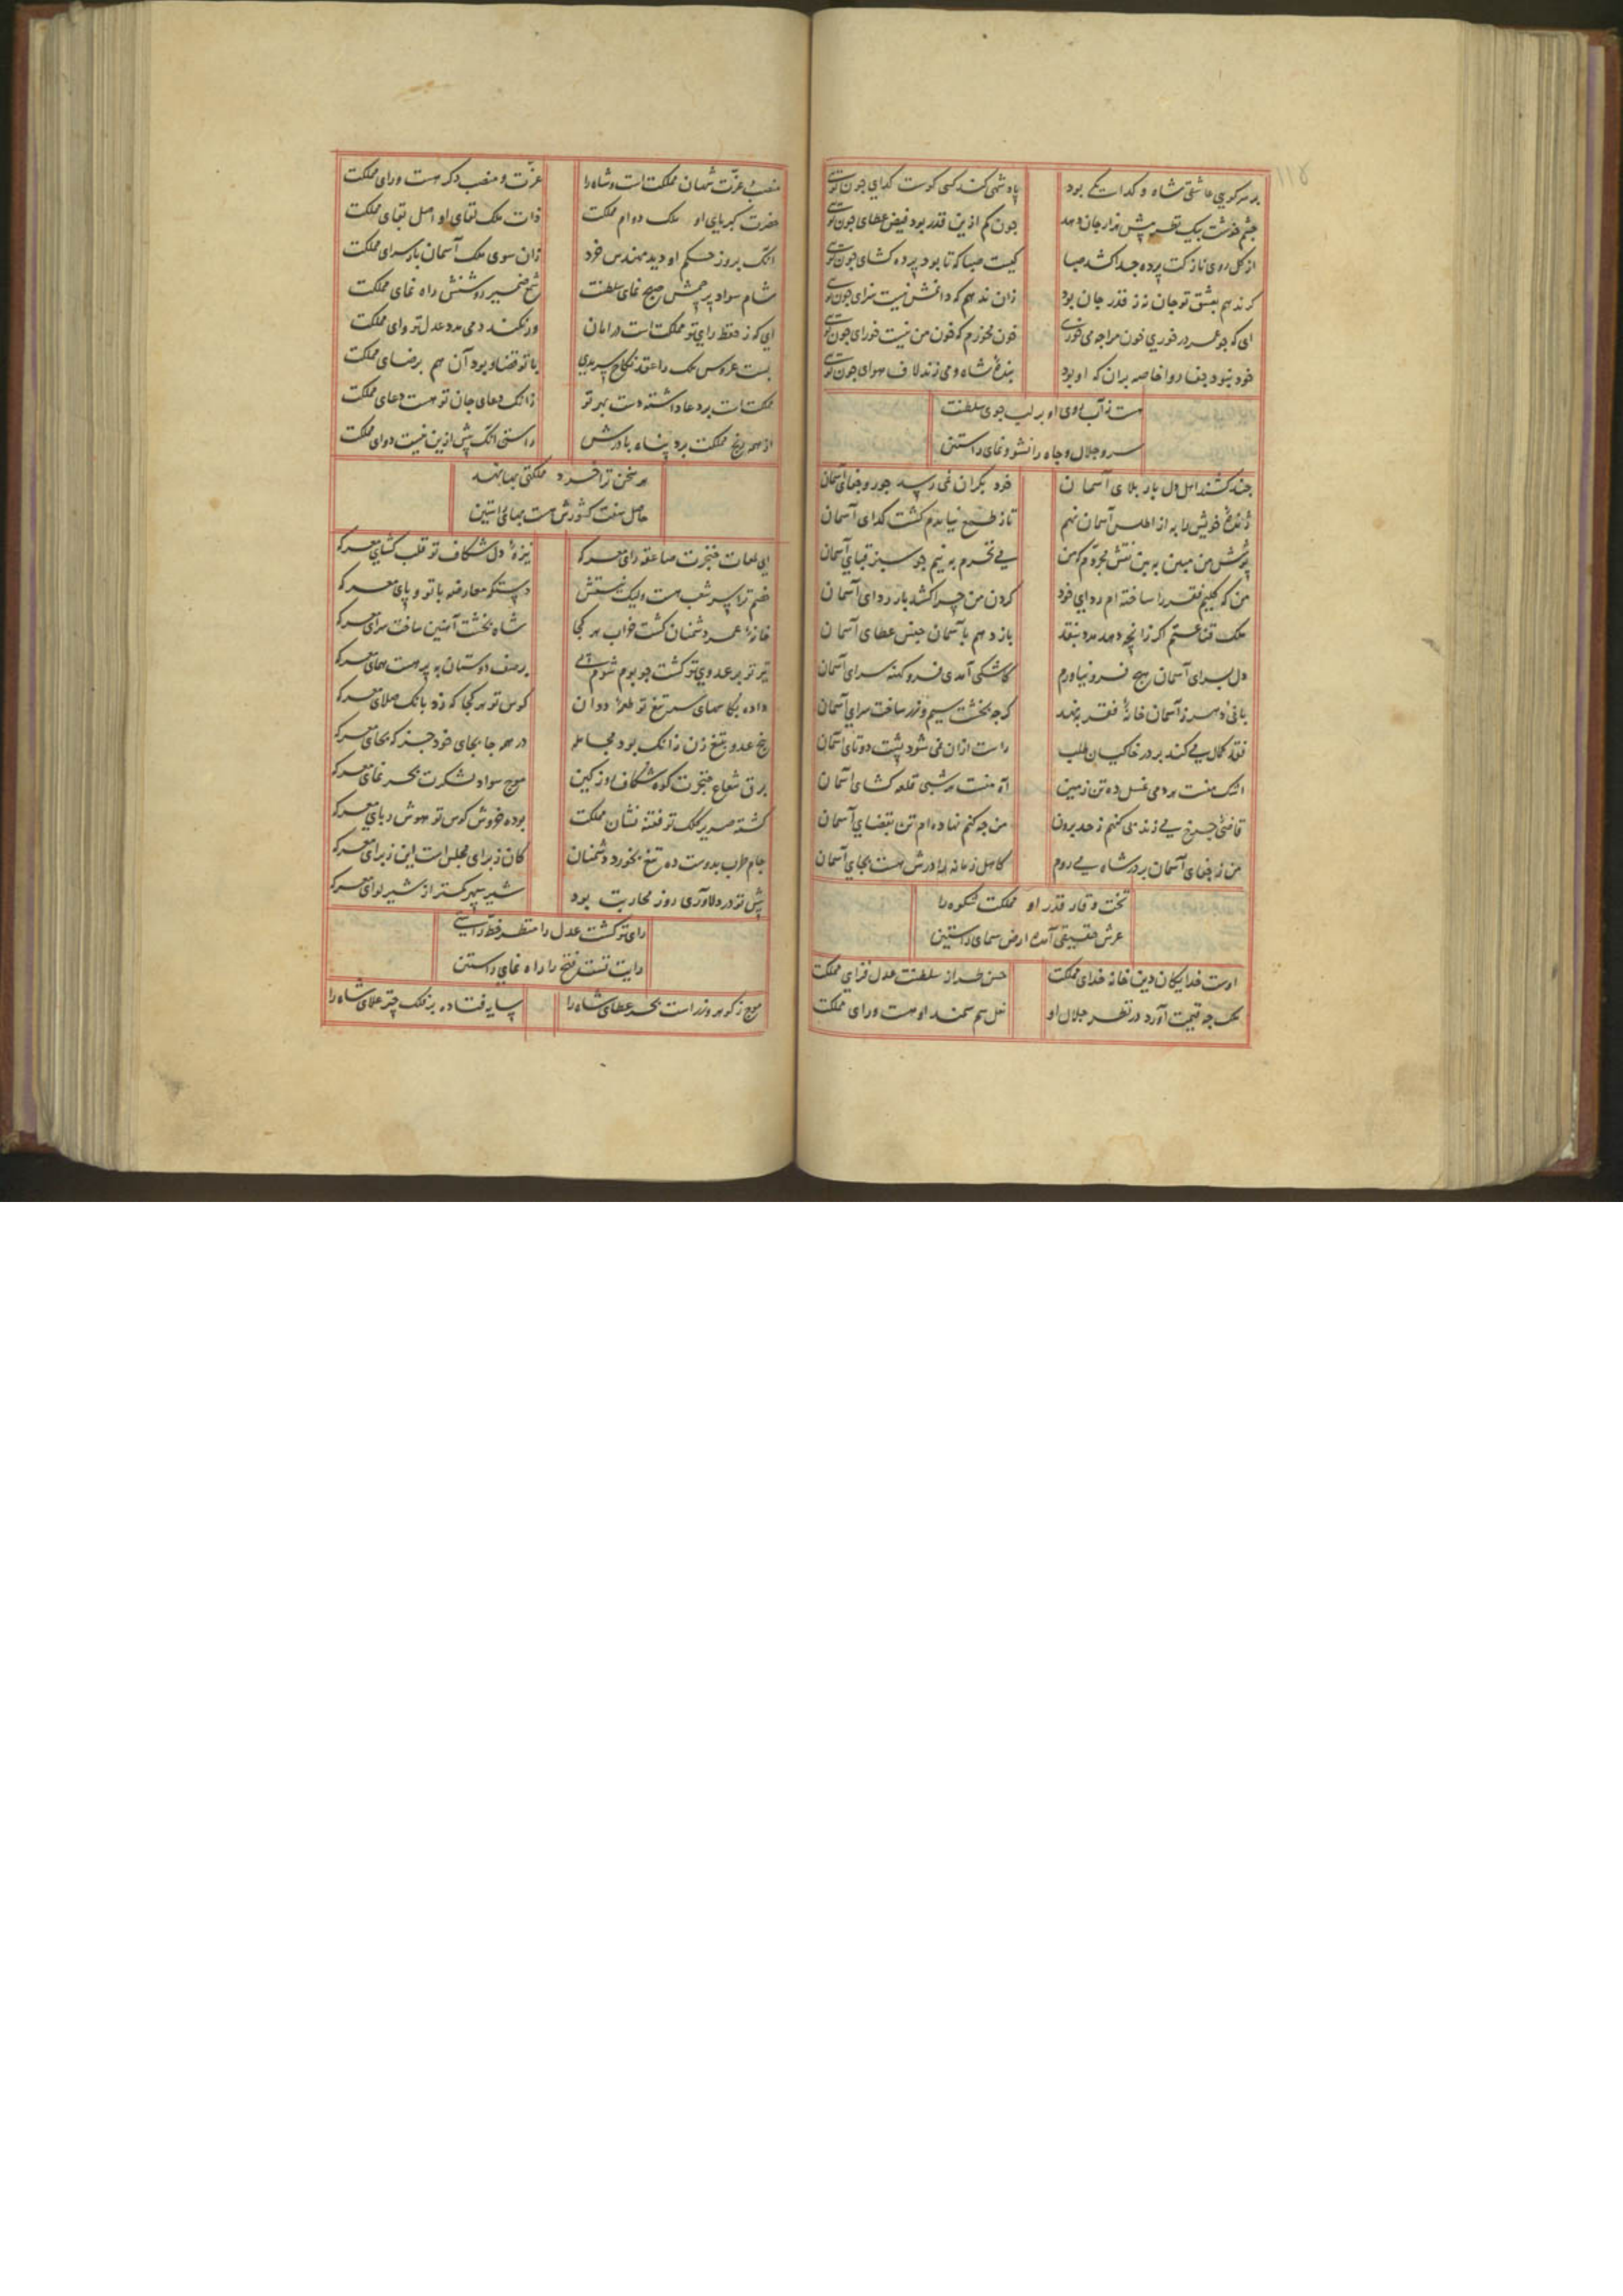 بر سر کوی عاشقی شاه و گدا یکی بود پادشهی کند کسی کوست گدای چون تویی
چشم خوشت بیک نظر پیش هزار جان دهد چون کم ازین قدر بود فیض عطای چون تویی
از گل روی نازکت پرده جدا کشد صبا کیست صبا که تا بود پرده کشای چون تویی
گر ندهم بعشق تو جان نه ز قدر جان بود زان ندهم که دانمش نیست سزای چون تویی
ای که چو عمر در خوری خون مرا چه می خوری خون نخورم که خون من نیست خورای چون تویی
خود نبود جفا روا خاصه بران که او بود بنده شاه و می زند لاف هوای چون تویی
هست ز آب روی او بر لب جوی سلطنت
سرو جلال و جاه را نشو و نمای راستین
چند کشند اهل دل بار بلای آسمان خود بکران نمی رسد جور و جفای آسمان
ژنده خویش را به از اطلس آسمان نهم تا ز طمع نیایدم گشت گدای آسمان
پوشش من مبین ببین نقش تجردم که من می نخرم به نیم جو سبز قبای آسمان
من که گلیم فقر را ساخته ام ردای خود گردن من چرا کشد بار ردای آسمان
ملک قناعتم اگر زانچه دهد مدد بنقد باز دهم بآسمان جنس عطای آسمان
دل بسرای آسمان هیچ فرو نیاورم کاشکی آمدی فرو کهنه سرای آسمان
بانی دهر ز آسمان خانه فقر بر نهد گرچه بخشت سیم و زر ساخت سرای آسمان
فقد کمال می کند بر در خاکیان طلب راست ازان نمی شود پشت دوتای آسمان
اشک منست هر دمی غسل ده تن زمین آه منست هر شبی قلعه کشای آسمان
قاضی چرخ می زند من کنهم ز حد برون من چه کنم نهاده ام تن بقضای آسمان
من ز جفای آسمان بر در شاه می روم کاهل زمانه را درش هست بجای آسمان
تخت وقار قدر او مملکت شکوه را
عرش حقیقی آمده ارض سمای راستین
اوست خدایگان دین خانه خدای مملکت حسن طراز سلطنت عدل فزای مملکت
ملک چه قیمت آورد در نظر جلال او نعل سم سمند او هست ورای مملکت
منصب و عزت شهان مملکت است و شاه را عزت و منصب دگر هست ورای مملکت
حضرت کبریای او ملک دوام مملکت ذات ملک لقای او اصل بقای مملکت
آنک بروز حکم او دید مهندس خرد زان سوی ملک آسمان بام سرای مملکت
شام سواد پرچمش صبح نمای سلطنت شمع ضمیر روشنش راه نمای مملکت
ای که ز حفظ رای تو مملکت است در امان ور نکند دمی مدد عدل تو وای مملکت
بست عروس ملک را عقد نکاح سرمدی با تو قضا و بود آن هم برضای مملکت
مملکتت برد دعا داشته دست بهر تو زانک دعای جان تو هست دعای مملکت
از همه رنج مملکت برد پناه با درش راستی آنک پیش ازین نیست دوای مملکت
هر سخن ترا خرد مملکتی بها نهد
حاصل هفت کشورش هست بهای راستین
ای لمعات خنجرت صاعقه رای معرکه نیزه دل شکاف تو قلب کشای معرکه
خصم ترا پر شعب هست ولیک نیستش دستکه معارضه با تو و پای معرکه
خانه عمر دشمنان گشت خراب هر کجا شاه بخشت آهنین ساخت سرای معرکه
تیر تو بر عدوی تو گشت چو بوم شوم پی بر صف دوستان به پر هست همای معرکه
داده بکاسهای سر تیغ تو طعمه ددان کوس تو هر کجا که زد بانگ صلای معرکه
رنج عدو بتیغ زن زانک بود مجامله در همه جا بجای خود جز که بجای معرکه
برق شعاع خنجرت کوه شکاف روز کین موج سواد لشکرت بحر نمای معرکه
گشته صریر کلک تو فتنه نشان مملکت بوده خروش کوس تو هوش ربای معرکه
جام طرب بدوست ده تیغ بخورد دشمنان کان ز برای مجلس است این ز برای معرکه
پیش تو در دلاوری روز محاربت بود شیر سپهر کمتر از شیر لوای معرکه
رای تو گشت عدل را منظر خط راستی
رایت تست فتح را راه نمای راستین
موج ز گوهر و زر است بحر عطای شاه را سایه فتاده بر فلک چتر علای شاه را